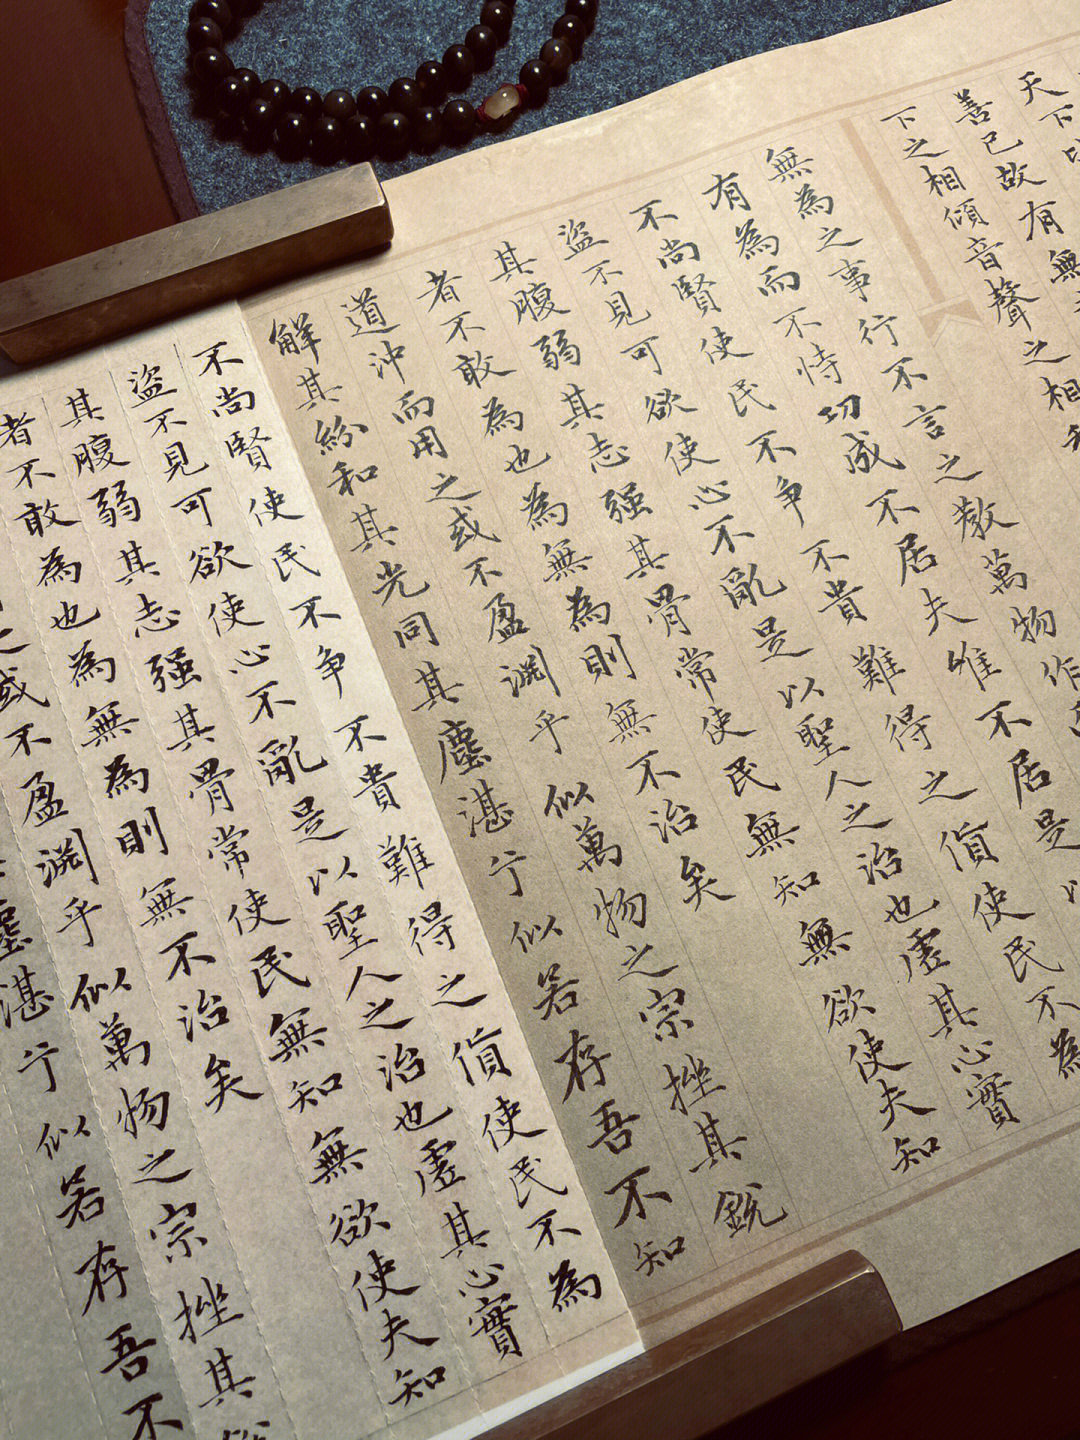 天下
善已故有無
下之相傾音聲之相
無為之事行不言之教萬物作
有為而不恃功成不居夫唯不居是以
不尚賢使民不争不貴難得之貨使民不為
盜不見可欲使心不亂是以聖人之治也虛其心實
其腹弱其志强其骨常使民無知無欲使夫知
者不敢為也為無為則無不治矣
道沖而用之或不盈淵乎似萬物之宗挫其銳
解其紛和其光同其塵湛兮似若存吾不知
不尚賢使民不争不貴難得之貨使民不為
盜不見可欲使心不亂是以聖人之治也虛其心實
其腹弱其志强其骨常使民無知無欲使夫知
者不敢為也為無為則無不治矣
之或不盈淵乎似萬物之宗挫其
塵湛兮似若存吾不